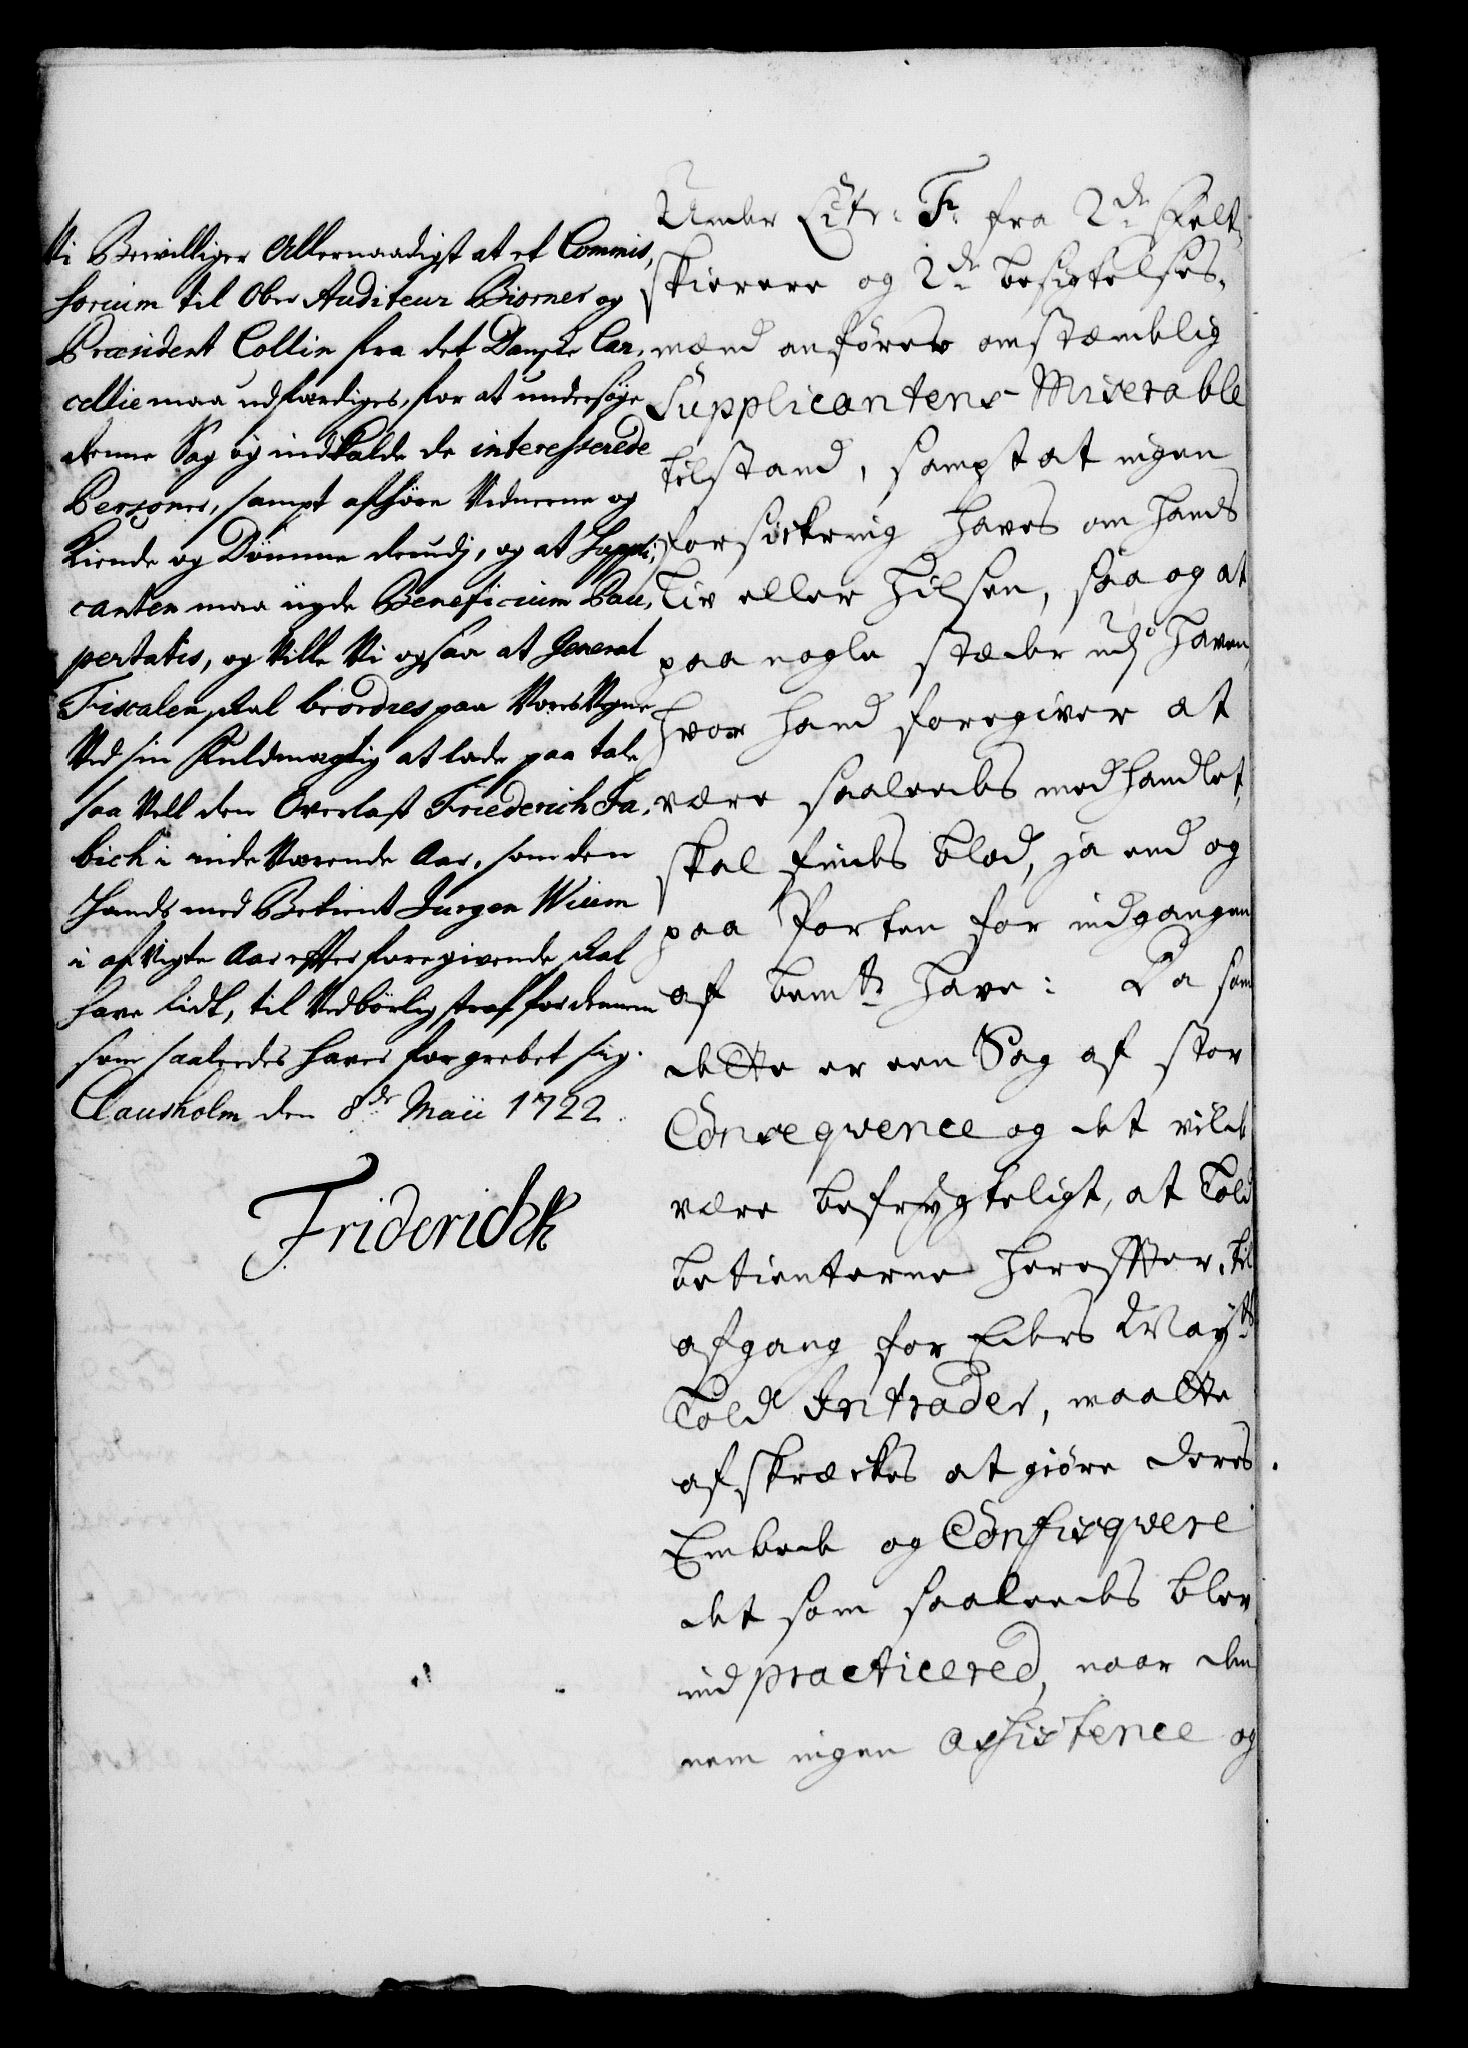 Vi Bevilliger Allernaadigst at et Commis,
sorium til Ober Auditeur Biorner og
Præsident Collin fra det Danske Can,
cellie maa udfærdiges, for at undersøge
denne Sag og indkalde de interesserede
Persones, sampt afhöre Vidnerne og
Kiende og Dömme derudj, og at Suppli,
canten maa nyde Beneficium Pau,
pertatis, og Ville Vi ogsaa at General
Fiscalen skal beordres paa Vores Vegne
Ved sin Fuldmægtig at lade paa tale
saa Vell den Overlast Friederich Fa,
bich i inde Værende Aar, som den
Hands med Betient Jurgen Wium
i afvigte Aar effter foregivende skal
have lidt, til Vedbörlig straf for dennem
som saaledes haver forgrebet sig.
Clausholm den 8de Maii 1722.
Friderich R
Under Litr: F: fra 2de Felt,
skierere og 2de besigtelses,
mænd anföres omstændelig
Supplicantens Miserable
tilstand, sampt at ingen
forsickring haves om hands
Liv eller Hilsen, saa og at
paa nogle stæder udj Haven,
hvor hand foregiver at
være saaledes medhandlet,
skal findes blod, ja end og
paa Porten for indgangen
af bemte Have: Da som
dette er een Sag af stor
Conseqvence og det vilde
være befrygteligt, at Told
betienterne hereffter, til
afgang for Eders Mayts
Told Intrader, maatte
afskreckes at giöre deres
Embede og Confisqvere
det som saaledes blev
ind practicered, naar den
nem ingen assistence og